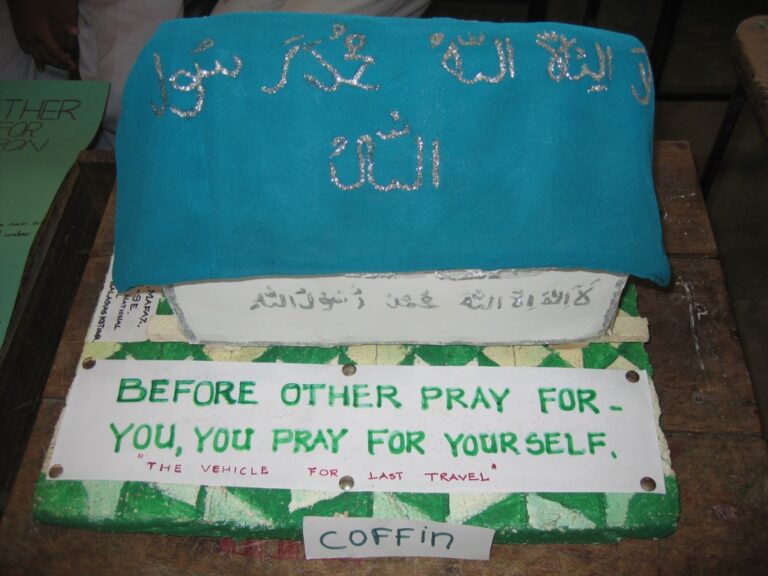 لا إله إلا الله محمد رسول
الله
لا اله الا الله محمد رسول الله
BEFORE OTHER PRAY FOR -
YOU, YOU PRAY FOR YOURSELF.
"THE VEHICLE FOR LAST TRAVEL"
COFFin
THER
FOR